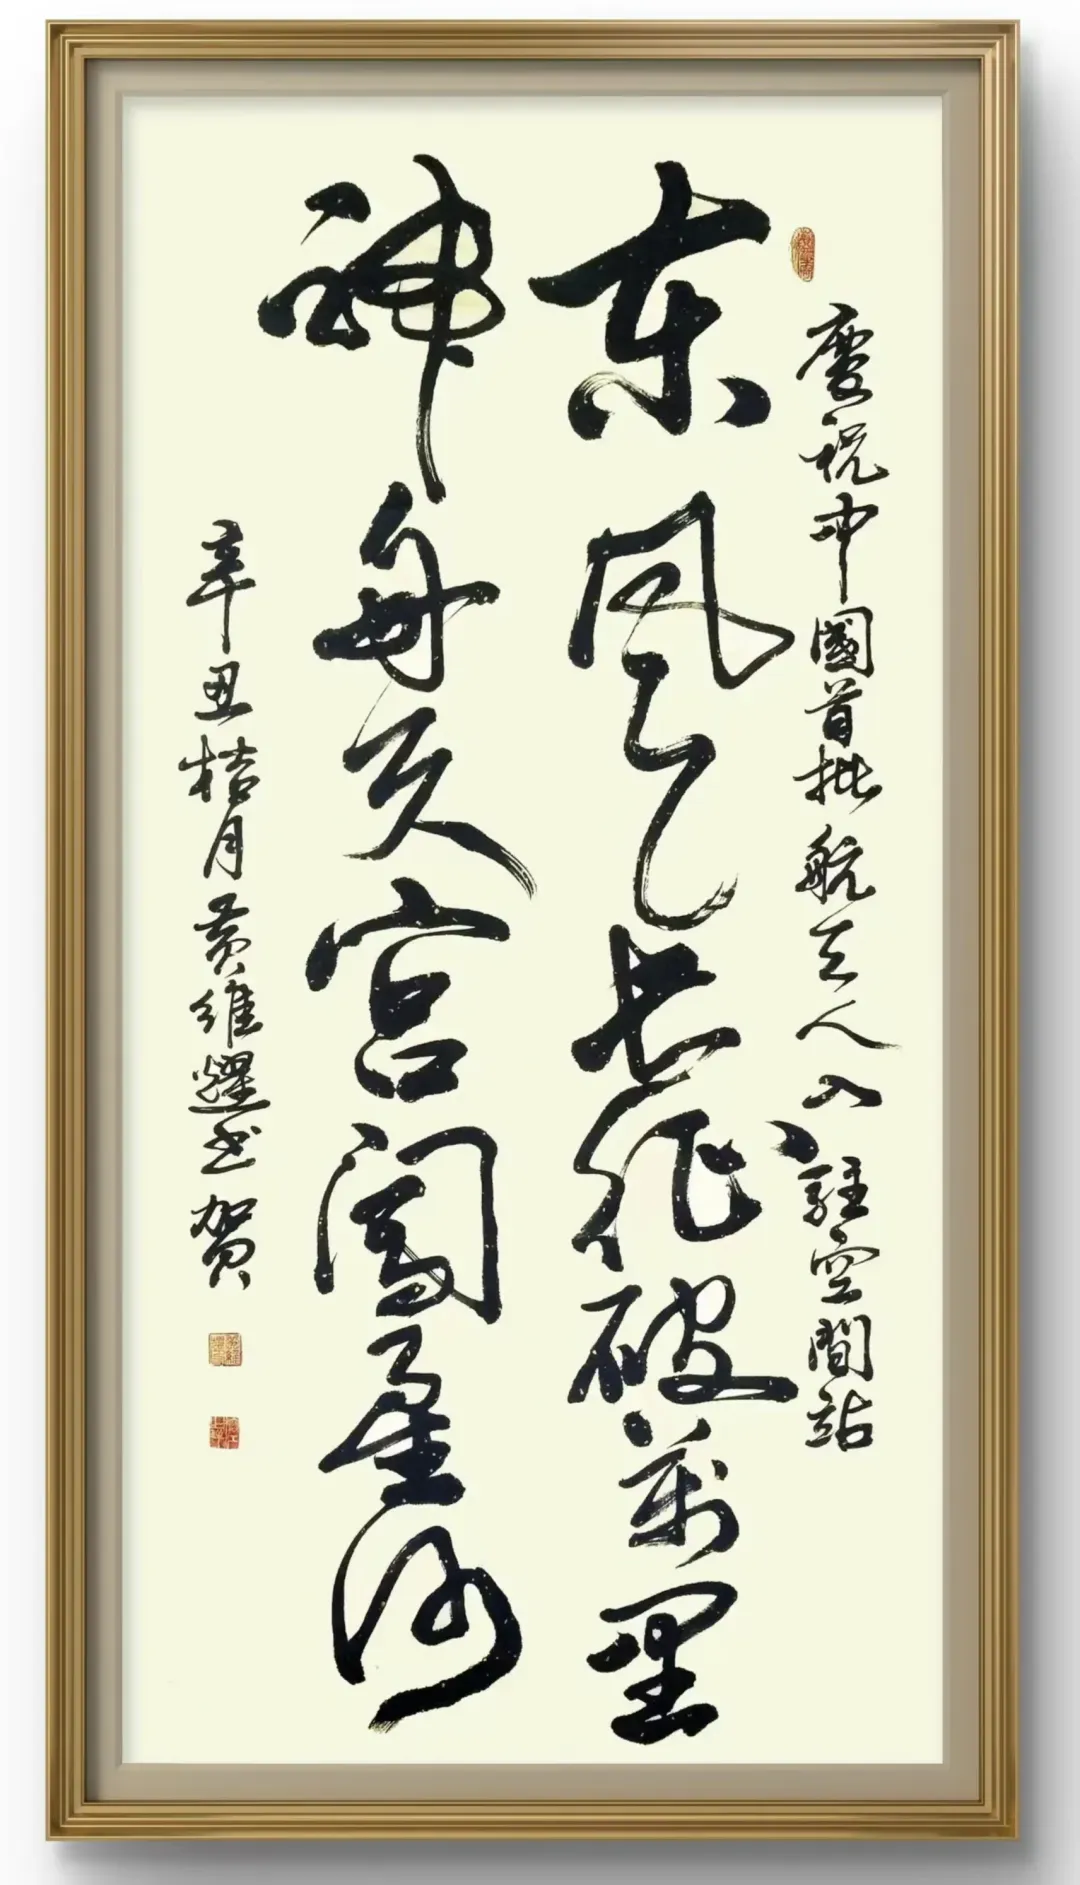 慶祝中國首批航天人入駐空間站
东風长征破萬里
神舟天宫闯星河
辛丑桔月黄維耀书賀